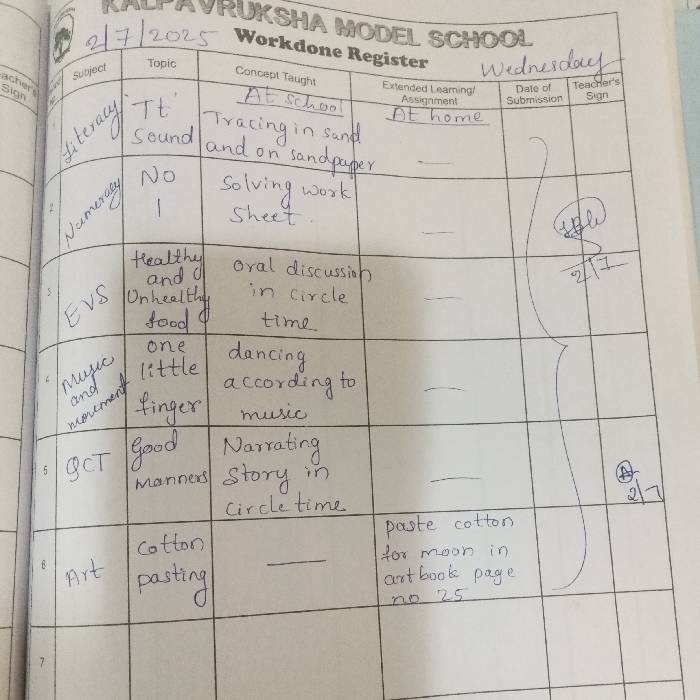 KALPAVRUKSHA MODEL SCHOOL
2/7/2025 Workdone Register Wednesday
Subject Topic Concept Taught Extended Learning/ Assignment Date of Submission Teacher's Sign
At school At home
Literacy 'Tt' Sound Tracing in sand and on sandpaper —
2 Numeracy No 1 Solving work sheet. —
3 EVS Healthy and Unhealthy food oral discussion in circle time —
2/7
4 Music and movement one little finger dancing according to music —
5 GCT Good manners Narrating Story in Circle time —
2/7
6 Art Cotton pasting — paste cotton for moon in art book page no 25
7
acher's
Sign